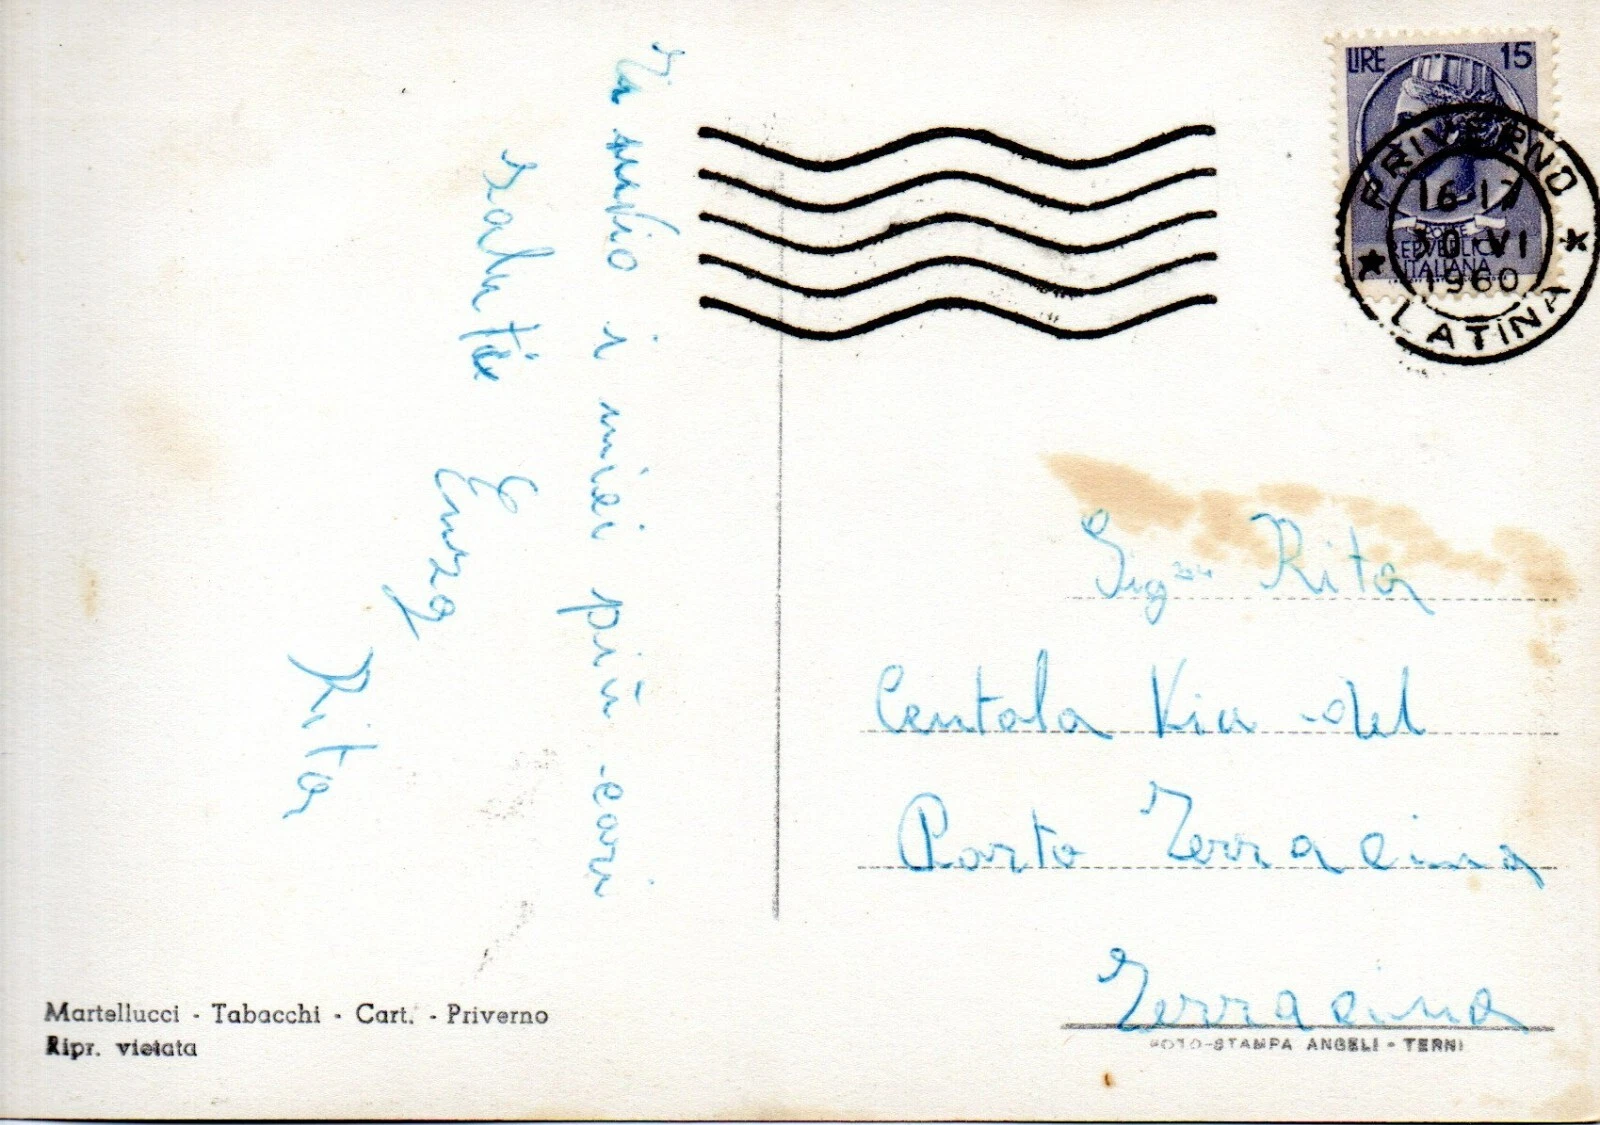 Ti invio i miei più cari
saluti
Enza
Rita
LIRE 15
POSTE
REPVBBLICA
ITALIANA
PRIVERNO
16-17
30 VI
1960
LATINA
Sig.na Rita
Centola Via del
Porto Terracina
Terracina
Martellucci - Tabacchi - Cart. - Priverno
Ripr. vietata
FOTO-STAMPA ANGELI - TERNI